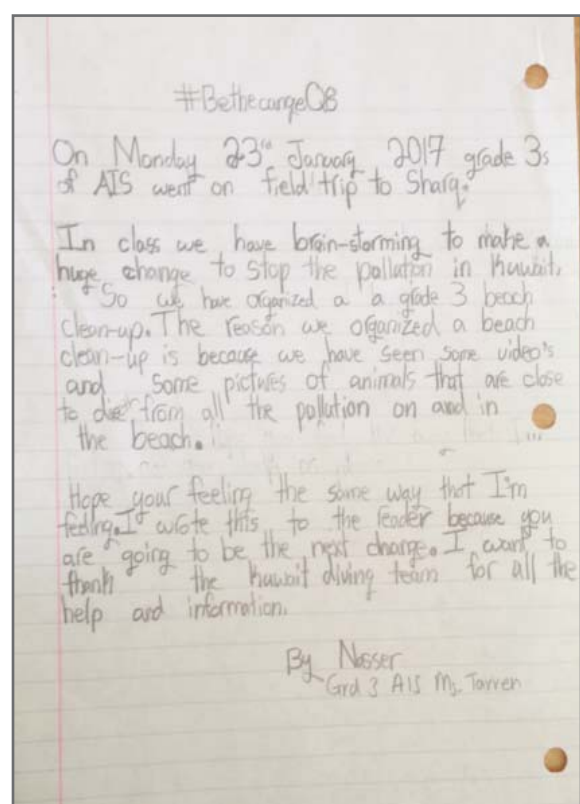 #BethecangeCB
On Monday 23rd January 2017 grade 3s
of AIS went on field trip to Sharq.
In class we have brain-storming to make a
huge change to stop the pollution in Kuwait.
So we have organized a a grade 3 beach
clean-up. The reason we organized a beach
clean-up is because we have seen some video's
and some pictures of animals that are close
to die from all the pollution on and in
the beach.
Hope your feeling the same way that I'm
feeling. I wrote this to the reader because you
are going to be the next change. I want to
thank the Kuwait diving team for all the
help and information.
By Nasser
Grd 3 AIS Ms. Tarren